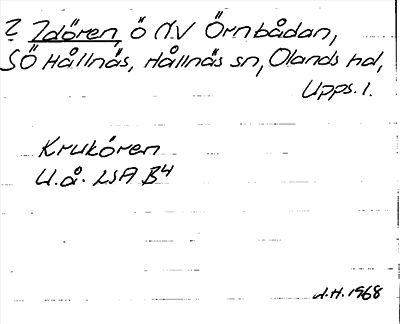 ? Idören, ö N.V Örnbådan,
SÖ Hållnäs, Hållnäs sn, Olands hd,
Upps. l.
Krukören
U.å. LSA B4
J.H. 1968